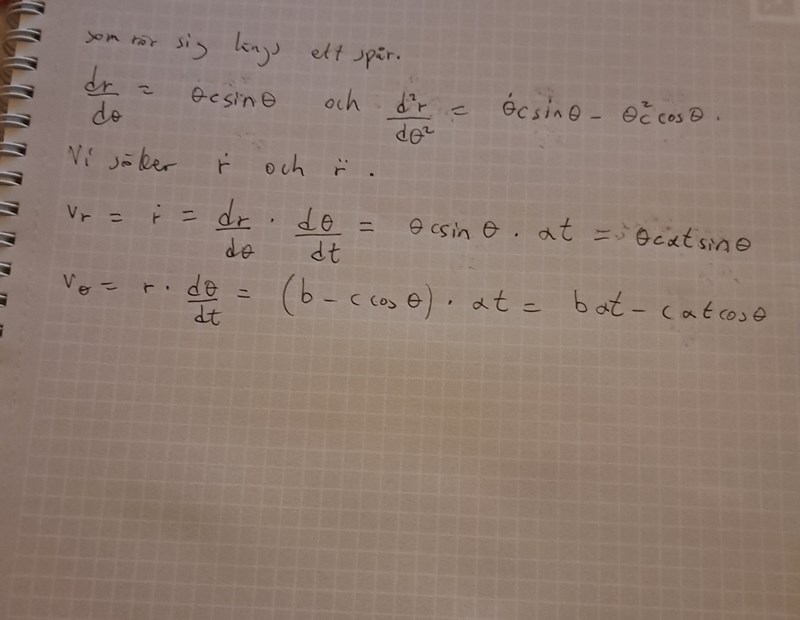 som rör sig längs ett spår.
dr/dθ = θcsinθ och d²r/dθ² = θ̇csinθ - θc²cosθ.
Vi söker ṙ och r̈.
vr = ṙ = dr/dθ · dθ/dt = θcsinθ · αt = θcαtsinθ
vθ = r · dθ/dt = (b - c cosθ) · αt = bαt - cαtcosθ